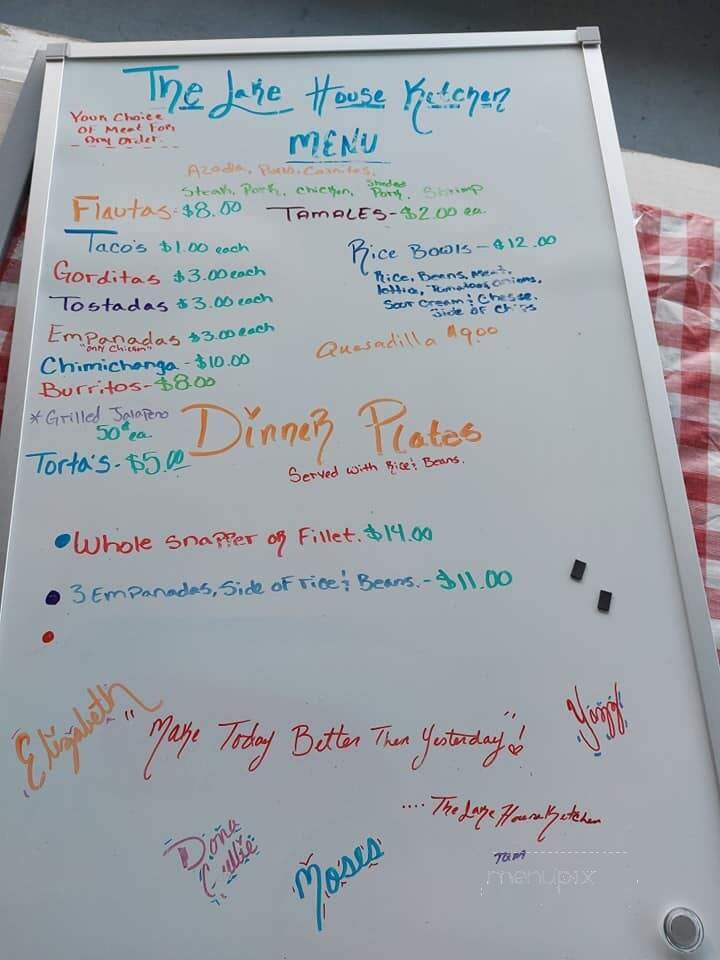 The Lake House Ketchen
MENU
Your Choice
Of Meat For
Any Order.
Azada, Puro, Carnitas,
Steak, Pork, Chicken, Shaded Pork, Shrimp
Flautas - $8.00
TAMALES - $2.00 ea.
Taco's $1.00 each
Gorditas $3.00 each
Tostadas $3.00 each
Empanadas $3.00 each
"only Chicken"
Chimichanga - $10.00
Burritos - $8.00
* Grilled Jalapeno
50¢ ea.
Torta's - $5.00
Rice Bowls - $12.00
Rice, Beans, Meat,
lettis, Tomatoes, onions,
Sour Cream & Chesse.
Side of Chips
Quesadilla $9.00
Dinner Plates
Served with Rice & Beans.
Whole snapper or Fillet. $14.00
3 Empanadas, Side of rice & Beans. - $11.00
Elizabeth
"Make Today Better Then Yesterday"!
.... The Lake House Ketchen
Dona
Callie
Moses
menupix